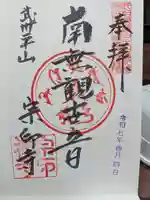 奉拝
令和七年
南無観世音
武州平山
宗印寺